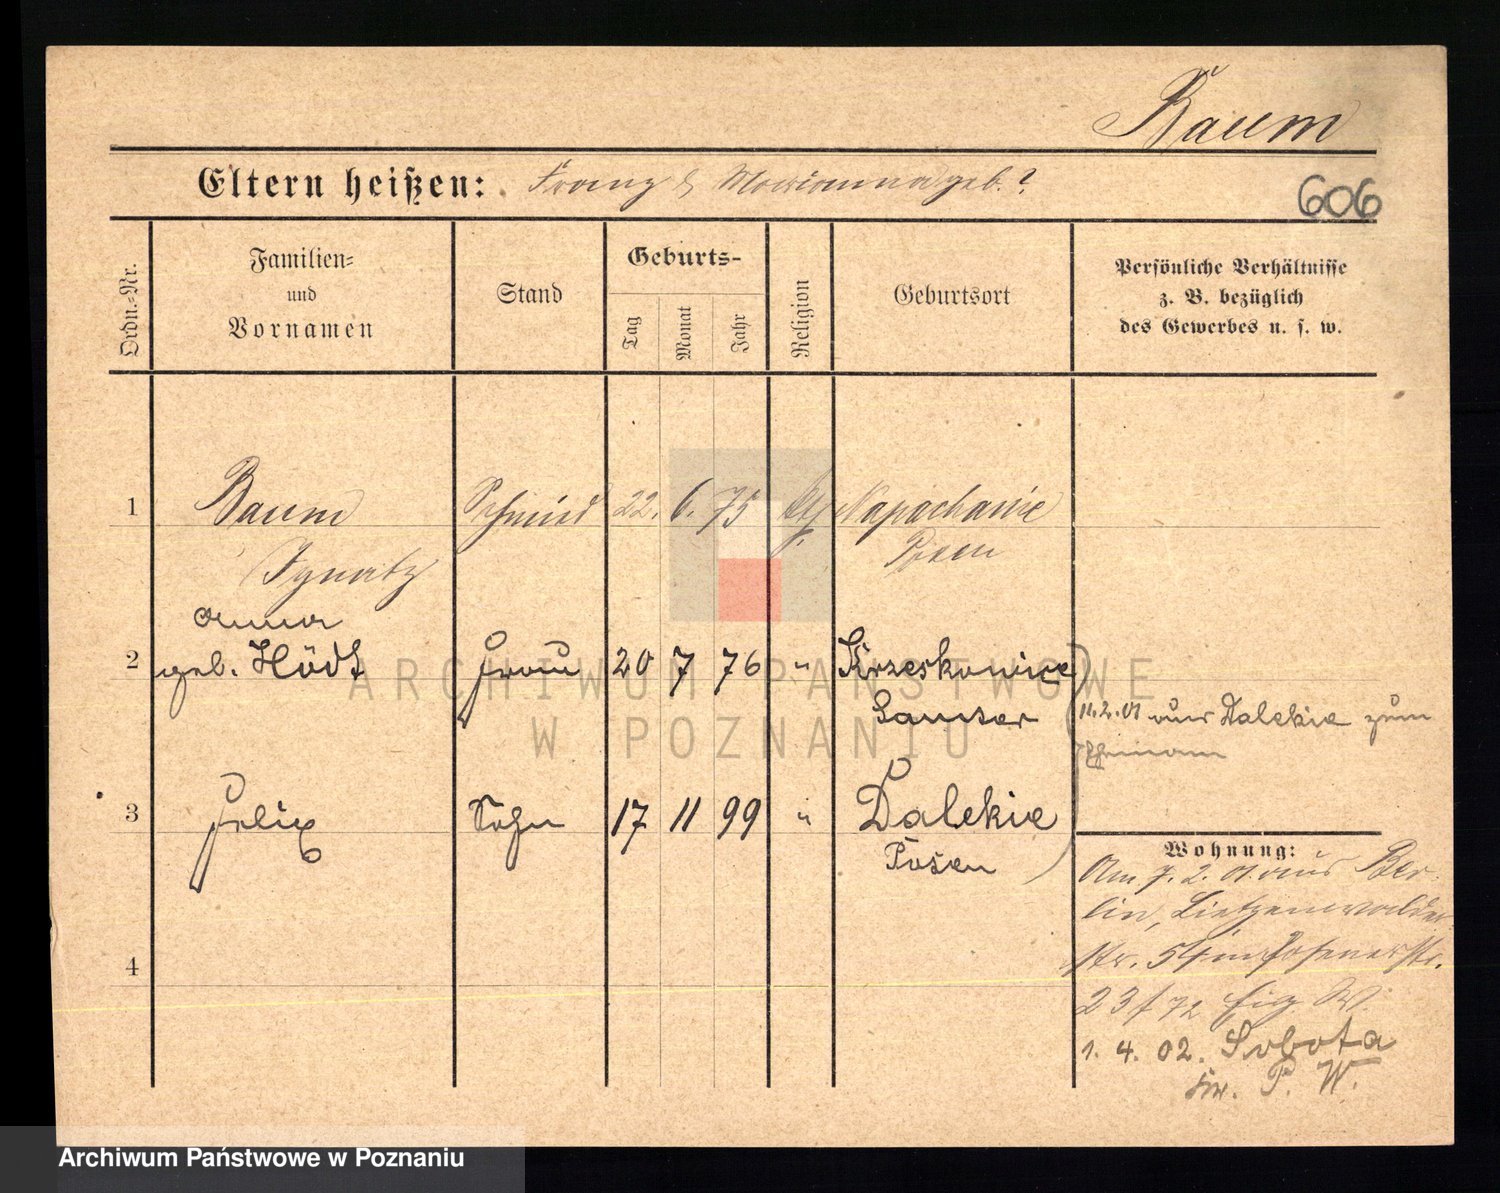 Baum
Eltern heißen: Franz & Marianna geb. ?
606
Ordn.-Nr.
Familien-
und
Vornamen
Stand
Geburts-
Tag
Monat
Jahr
Religion
Geburtsort
Persönliche Verhältnisse
z. B. bezüglich
des Gewerbes u. s. w.
1 Baum Schmied 22. 6. 75 Napachanie
Posen
Ignatz
Anna
2 geb. Hödt Frau 20 7 76 " Krzeskowice
Samter
11.2.01 aus Dalekie zum
Ehemann
3 Felix Sohn 17 11 99 " Dalekie
Posen
Wohnung:
Am 7. 2. 01 aus Ber-
lin, Lietzenwalder
str. 54 in Posenerstr.
23 / 72 W.
1. 4. 02. Sobota
P. W.
4
ARCHIWUM PAŃSTWOWE
W POZNANIU
Archiwum Państwowe w Poznaniu